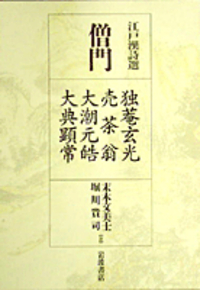 江戸漢詩選
僧門
独菴玄光
売茶翁
大潮元皓
大典顕常
末木文美士
堀川貴司
岩波書店